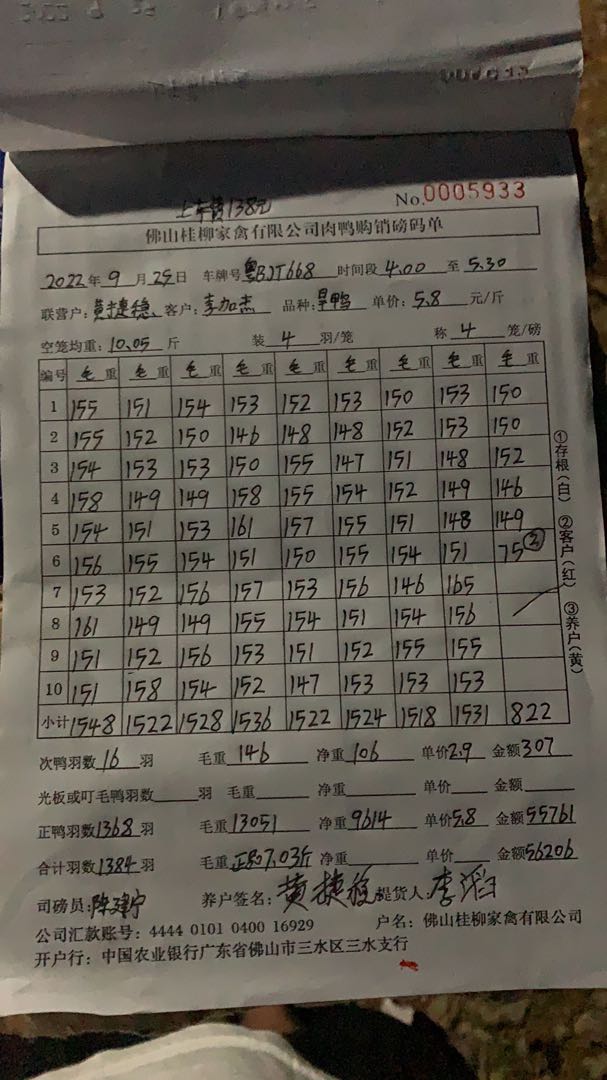 上车费138元
No.0005933
佛山桂柳家禽有限公司肉鸭购销磅码单
2022年9月25日 车牌号粤BJT668 时间段4.00至5.30
联营户:黄捷稳 客户:李加杰 品种:旱鸭 单价:5.8元/斤
空笼均重:10.05斤 装4羽/笼 称4笼/磅
编号 毛重 毛重 毛重 毛重 毛重 毛重 毛重 毛重 毛重
1 155 151 154 153 152 153 150 153 150
2 155 152 150 146 148 148 152 153 150
3 154 153 153 150 155 147 151 148 152
4 158 149 149 158 155 154 152 149 146
5 154 151 153 161 157 155 151 148 149
6 156 155 154 151 150 155 154 151 75②
7 153 152 156 157 153 156 146 165
8 161 149 149 155 154 151 154 156
9 151 152 156 153 151 152 155 155
10 151 158 154 152 147 153 153 153
小计 1548 1522 1528 1536 1522 1524 1518 1531 822
①存根(白) ②客户(红) ③养户(黄)
次鸭羽数16羽 毛重146 净重106 单价2.9 金额307
光板或叮毛鸭羽数 羽 毛重 净重 单价 金额
正鸭羽数1368羽 毛重13051 净重9614 单价5.8 金额55761
合计羽数1384羽 毛重正品7.03斤 净重 单价 金额56206
司磅员:陈建宁 养户签名:黄捷稳 提货人:李
公司汇款账号:4444 0101 0400 16929 户名:佛山桂柳家禽有限公司
开户行:中国农业银行广东省佛山市三水区三水支行